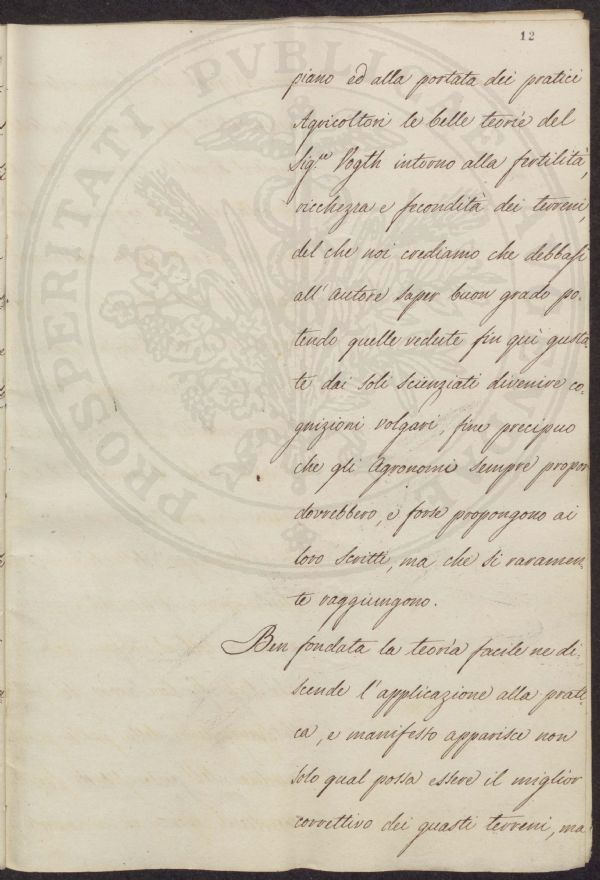 12
piano ed alla portata dei pratici
Agricoltori le belle teorie del
Sig.re Vogth intorno alla fertilità,
ricchezza e fecondità dei terreni,
del che noi crediamo che debbasi
all' autore saper buon grado po-
tendo quelle vedute fin quì gusta-
te dai soli scienziati divenire co-
gnizioni volgari, fine precipuo
che gli Agronomi sempre propor
dovrebbero, e forse propongono ai
loro scritti, ma che si raramen-
te raggiungono.
Ben fondata la teoria facile ne di-
scende l'applicazione alla prati-
ca, e manifesto apparisce non
solo qual possa essere il miglior
correttivo dei guasti terreni, ma
PROSPERITATI PVBLICAE